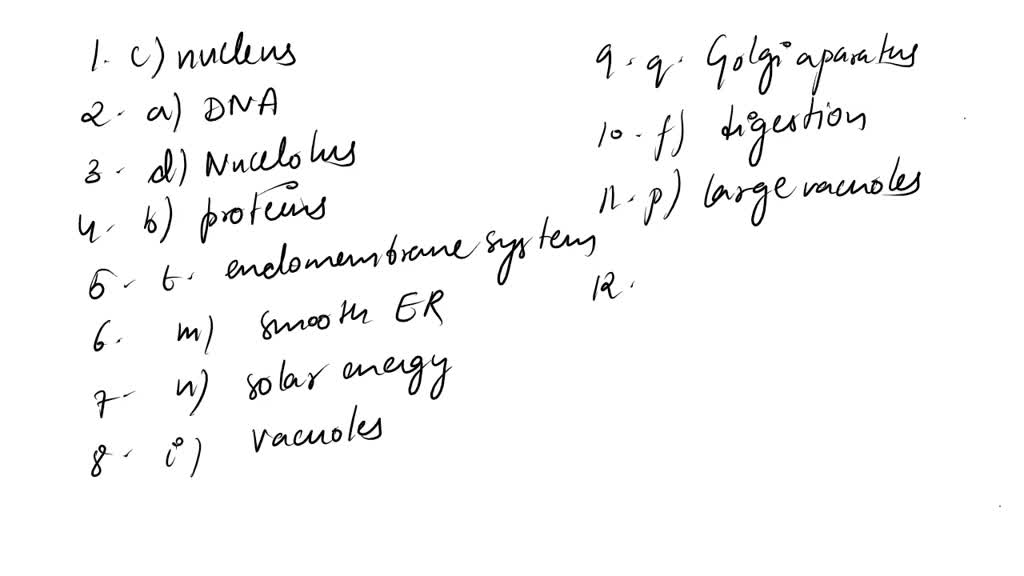 1. c) nucleus
2. a) DNA
3. d) Nucelolus
4. b) proteins
5. t. endomembrane system
6. m) smooth ER
7. n) solar energy
8. i) vacuoles
9. q. Golgi aparatus
10. f) digestion
11. p) large vacuoles
12.